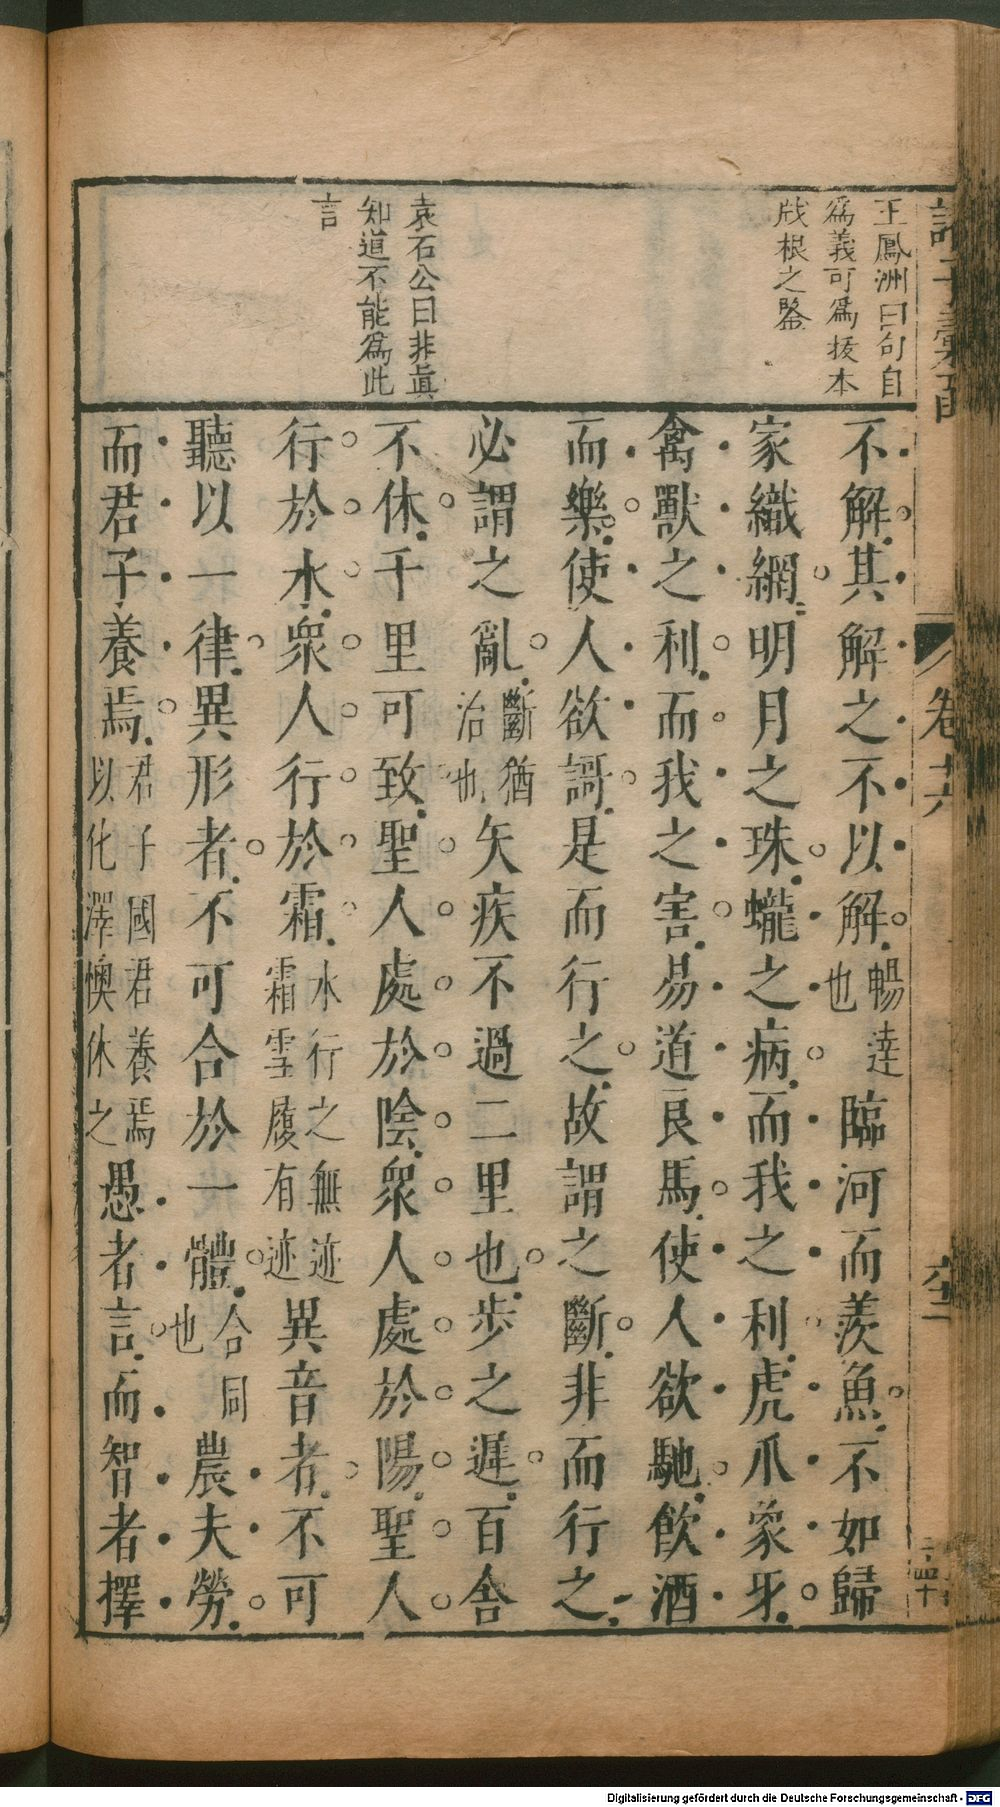 王鳳洲曰句自
為義可為拔本
戕根之鑒
袁石公曰非眞
知道不能為此
言
卷十六
不解其解之不以解暢達也臨河而羨魚不如歸
家織網明月之珠蠬之病而我之利虎爪象牙
禽獸之利而我之害易道良馬使人欲馳飲酒
而樂使人欲謌是而行之故謂之斷非而行之
必謂之亂斷猶治也矢疾不過二里也步之遲百舍
不休千里可致聖人處於陰眾人處於陽聖人
行於水眾人行於霜水行之無迹霜雪履有迹異音者不可
聽以一律異形者不可合於一體合同也農夫勞
而君子養焉君子國君養焉以化澤懊休之愚者言而智者擇
Digitalisierung gefördert durch die Deutsche Forschungsgemeinschaft - DFG